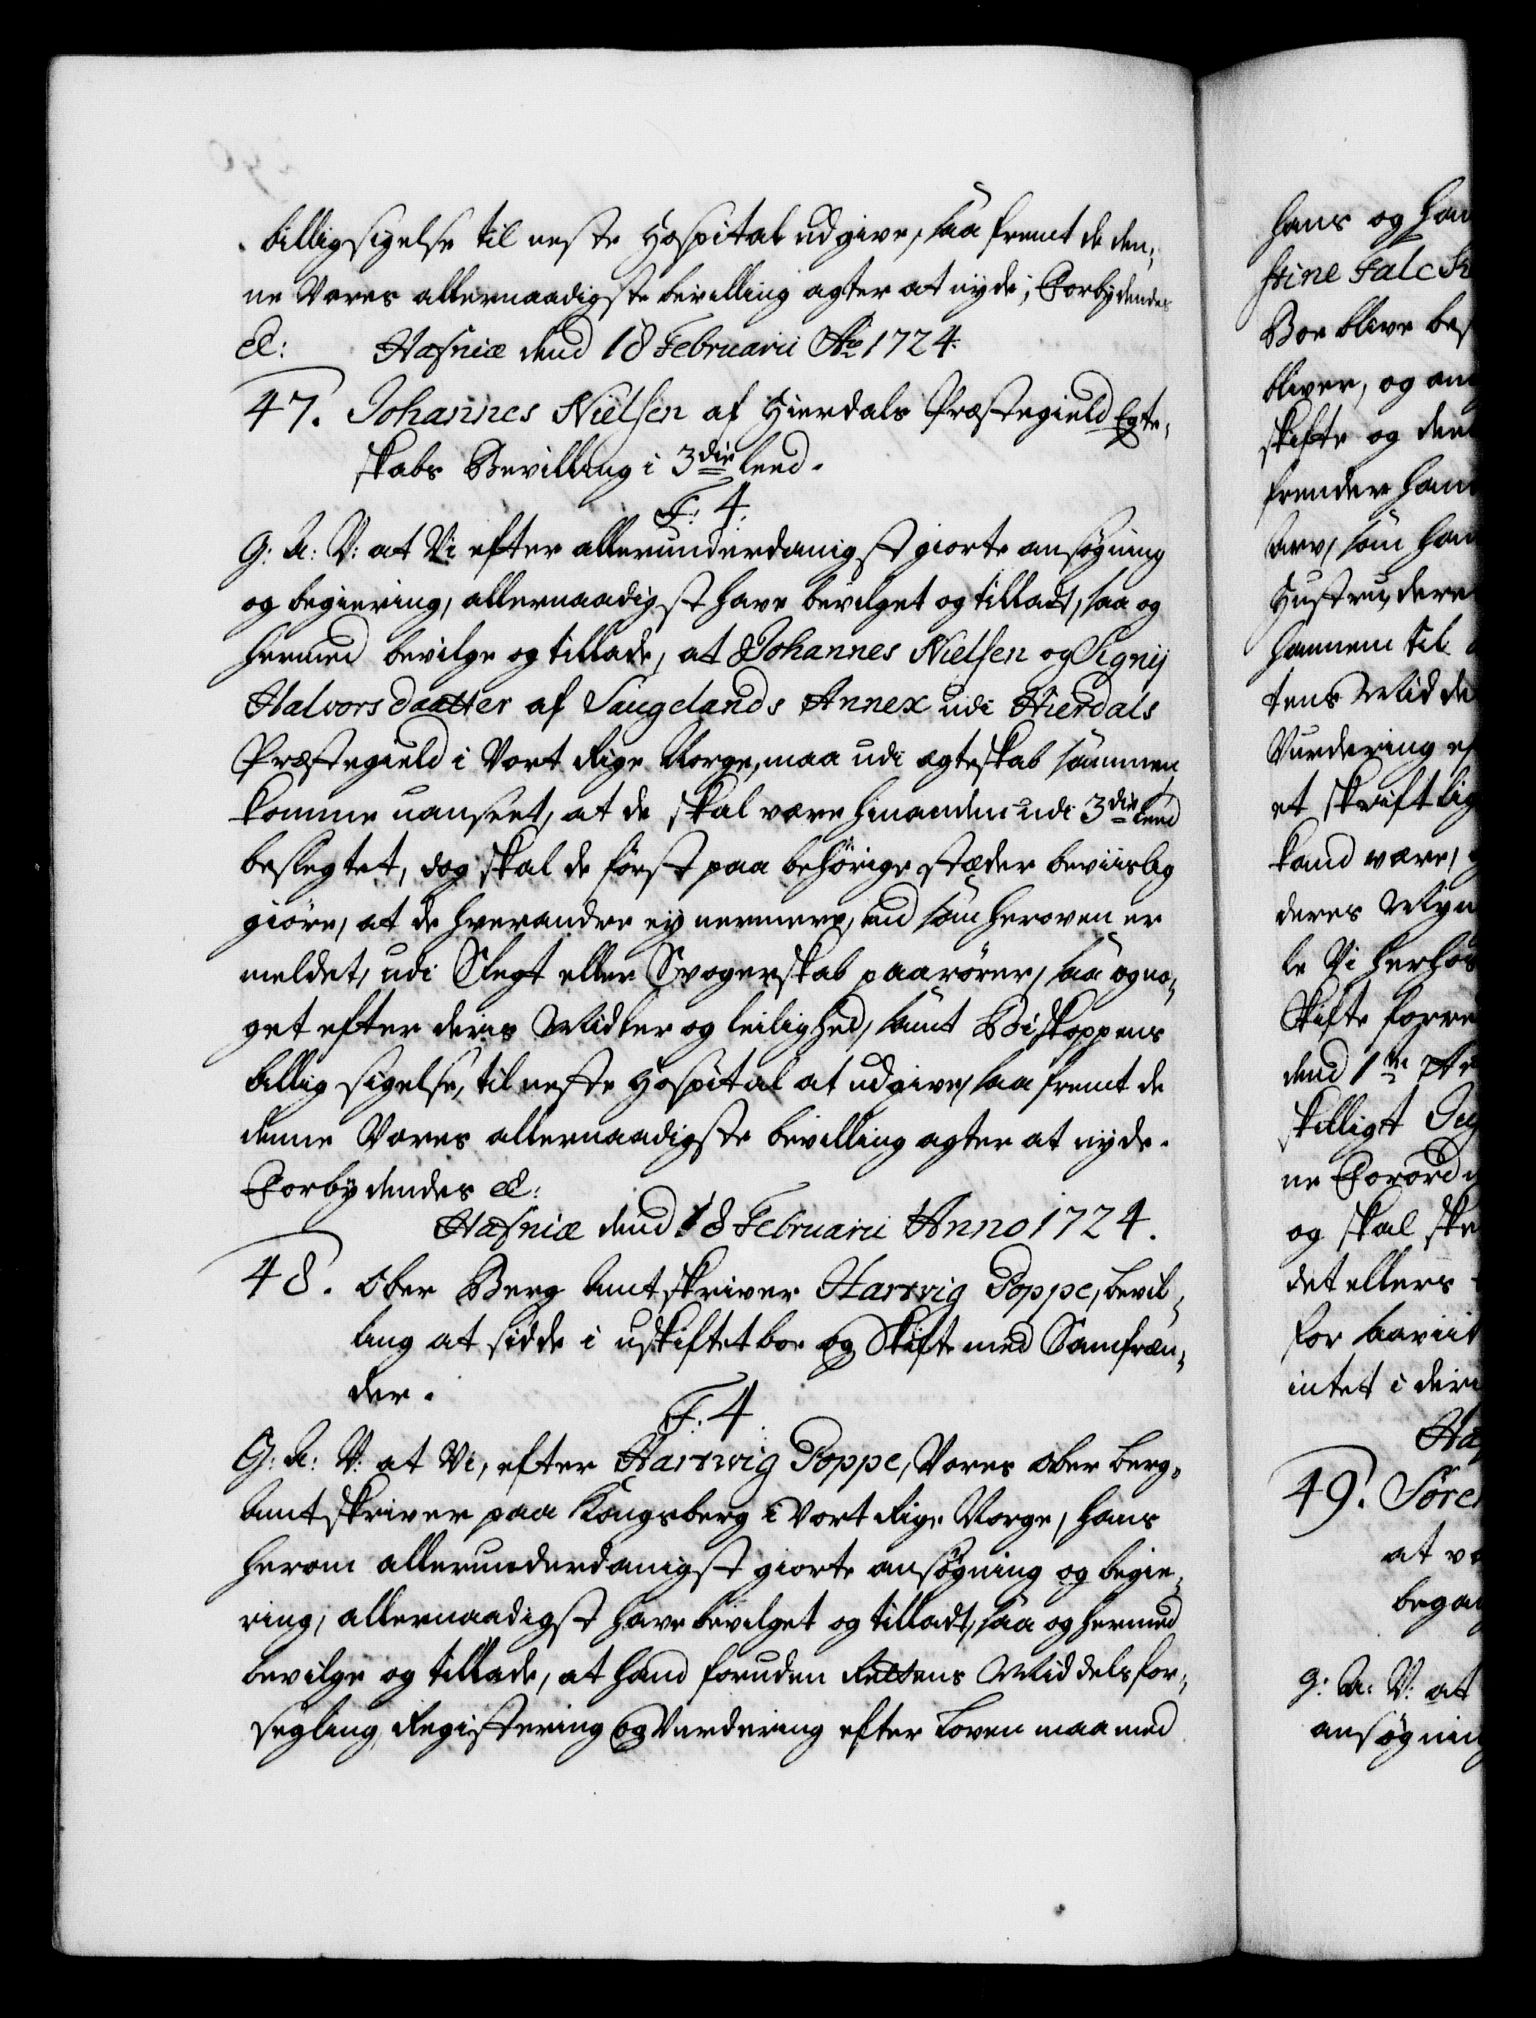 billig sigelse til neste Hospital udgive, saa fremt de den,
ne Vores allernaadigste bevilling agter at nyde; Forbydendes
&:    Hafniæ dend 18 Februarii Ao 1724.
47. Johannes Nielsen af Hierdals Præstegield Egte,
skabs Bevilling i 3die leed.
F: 4.
G: A: V: at Vi efter allerunderdanigst giorte ansøgning
og begiering, allernaadigst have bevilget og tilladt, saa og
hermed bevilge og tillade, at Johannes Nielsen og Signij
Halvorsdaatter af Saugelands Annex udi Hierdals
Præstegield i Vort Rige Norge, maa udi egteskab sammen
komme uanseet, at de skal være hinanden udi 3die leed
beslegtet, dog skal de først paa behørige stæder beviislig
giøre, at de hverandre ey nermere, end som heroven er
meldet, udi Slegt eller Svogerskab paarører, saa og no,
get efter deris Midler og leilighed, samt Biskoppens
billig sigelse, til neste Hospital at udgive, saa fremt de
denne Vores allernaadigste bevilling agter at nyde.
Forbydendes &:
Hafniæ dend 18 Februarii Anno 1724.
48. Ober Berg Amtskriver Hartvig Poppe, bevil,
ling at sidde i uskiftet boe og Skifte med Samfræn,
der.
F: 4.
G: A: V: at Vi, efter Hartwig Poppe, Vores Ober Berg,
Amtskriver paa Kongsberg i Vort Rige Norge, hans
herom allerunderdanigst giorte ansøgning og begie,
ring, allernaadigst have bevilget og tilladt, saa og hermed
bevilge og tillade, at hand foruden Rettens Middels for,
segling, Registering og Vurdering efter Loven maa med
hans og
stine Falc
Boe blive
bliver, og
skifte og
frender
som
Hustru,
hannem til
tens Midde
Vurdering
et skriftlig
kand være,
deres
le Vi
Skifte
dend 1te
skilligt
ne
og skal
det ellers
for
intet i
49. Søre
at
G: A: V: at
ansøgning